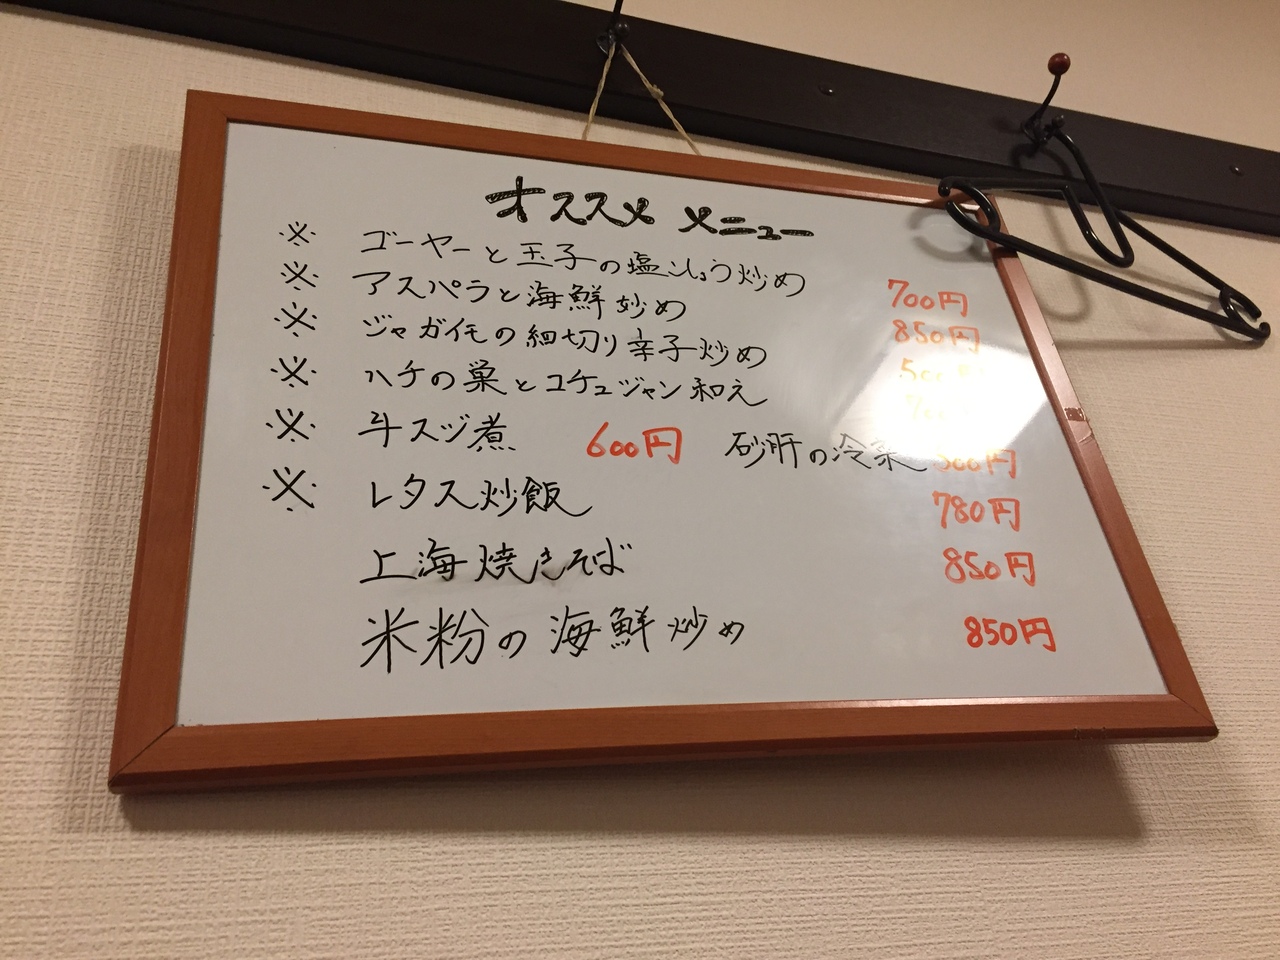 オススメ メニュー
※ ゴーヤーと玉子の塩こしょう炒め 700円
※ アスパラと海鮮炒め 850円
※ ジャガイモの細切り辛子炒め
※ ハチの巣とコチュジャン和え
※ 牛スヅ煮 600円 砂肝の冷菜 500円
※ レタス炒飯 780円
上海焼きそば 850円
米粉の海鮮炒め 850円